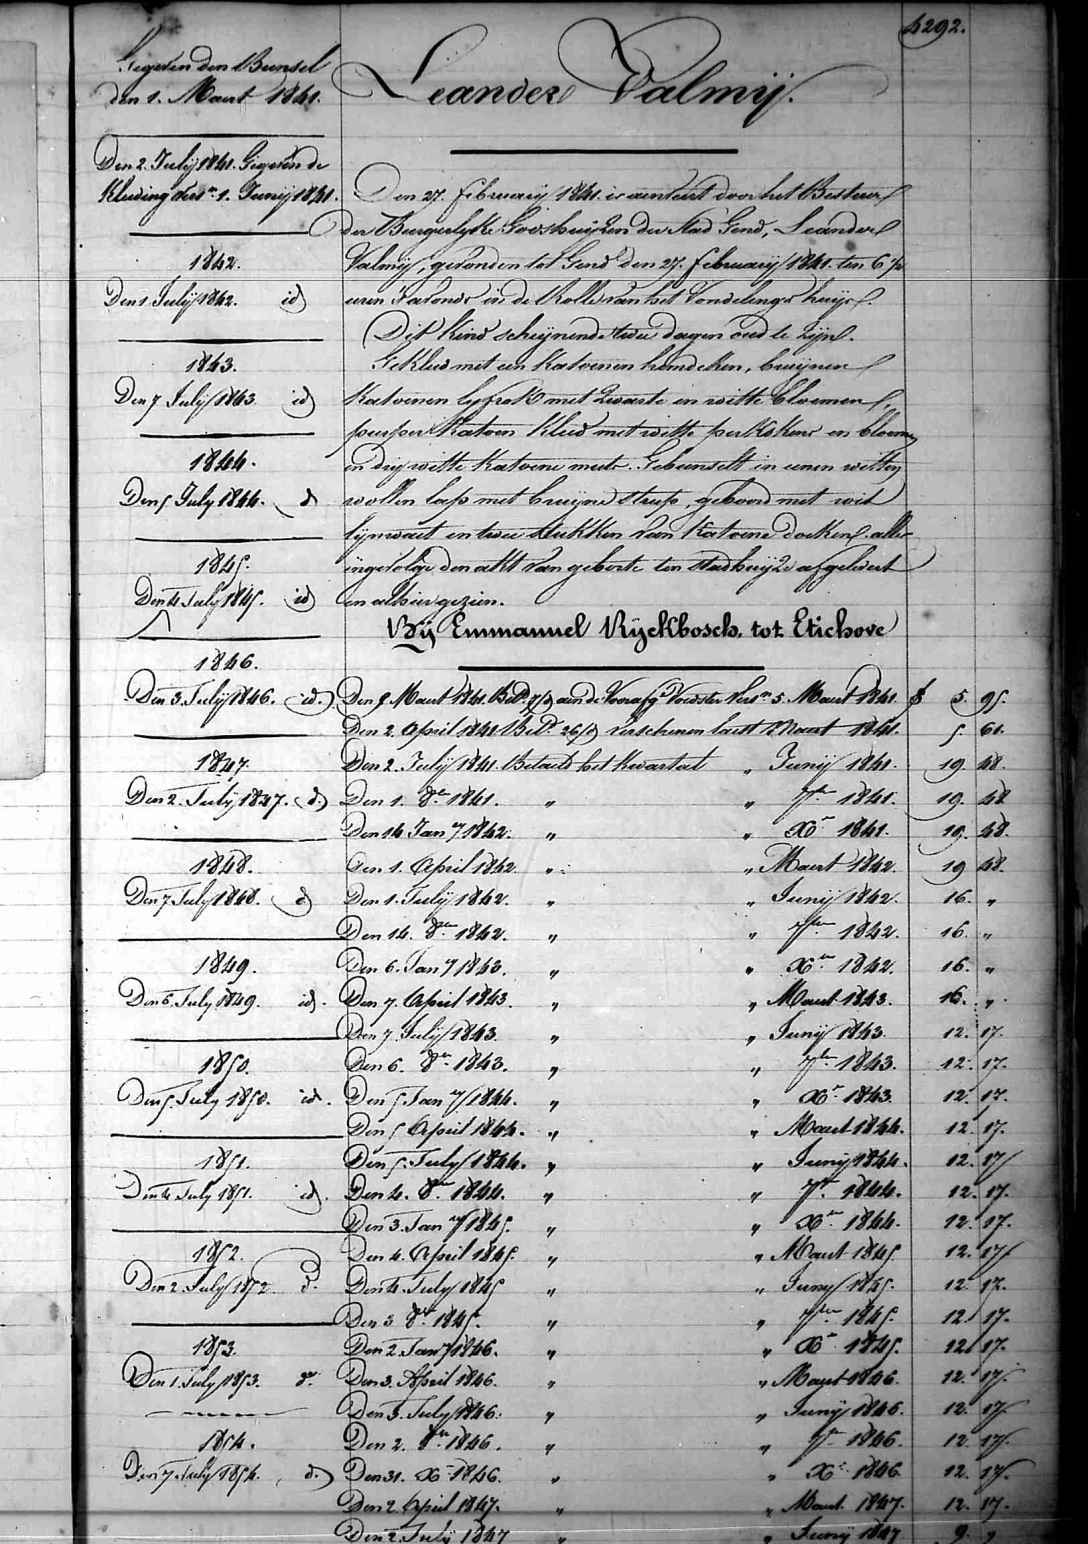 4292.
Gegeven den Bunsel
den 1. Maert 1841.
Leander Valmij.
Den 2. July 1841. Gegeven de
Kleding vers.n 1. Junij 1841.
1842.
Den 1 Julij 1842. id
1843.
Den 7 Julij 1843 id
1844.
Den 5 July 1844. d
1845.
Den 4 July 1845. id
1846.
Den 3. July 1846. id.
1847.
Den 2. July 1847. d.
1848.
Den 7. July 1848. d
1849.
Den 6. July 1849. id.
1850.
Den 5. July 1850. id.
1851.
Den 4 July 1851. id.
1852.
Den 2. July 1852. d.
1853.
Den 1. July 1853. d.
1854.
Den 7 July 1854. d.
Den 27. februarij 1841. is aenveirt door het Bestuer
der Burgerlyke Godshuijzen der stad Gend, Leander
Valmij, gevonden tot Gend den 27. februarij 1841. ten 6 ½
uren s'avonds in de Rolle van het Vondelings huijs.
Dit kind scheijnende twee dagen oud te zijn.
Gekleed met een katoenen hemdeken, bruijnen
katoenen lyfrok met zwarte en witte bloemen,
purper katoen kleed met witte perkskens en bloemen
en drij witte katoene muts. Gebunselt in eenen witten
wollen lap met bruijne streep, geboord met wit
lijnwaet en twee stukken van katoene doeken. alles
ingevolge den akt van geborte ten stadhuijze afgelevert
en alhier gezien.
Bij Emmanuel Ryckbosch. tot Etichove
Den 8 Maert 1841. Bet.d 7/9 aen de Voorafg.d Voedster vers.n 5. Maert 1841. f 5. 95.
Den 2. April 1841 Bet.d 26/9 verschenen laest Maert 1841. 5. 61.
Den 2. Julij 1841. Betaeld het kwartael " Junij 1841. 19. 48.
Den 1. 8.er 1841. " " 7.er 1841. 19. 48
Den 14 Jan.y 1842. " " X.r 1841. 19. 48.
Den 1. April 1842. " " Maert 1842. 19 48.
Den 1. Julij 1842. " " Junij 1842. 16. "
Den 14. 8.er 1842. " " 7ber 1842. 16. "
Den 6. Jan.y 1843. " " X.er 1842. 16. "
Den 7. April 1843. " " Maert 1843. 16. "
Den 7. Julij 1843. " " Junij 1843. 12. 17.
Den 6. 8.er 1843. " " 7.er 1843. 12. 17.
Den 5. Jan.y 1844. " " X.r 1843. 12. 17.
Den 5 April 1844. " " Maert 1844. 12 17.
Den 5. July 1844. " " Junij 1844. 12. 17
Den 4. 8.er 1844. " " 7.er 1844. 12. 17.
Den 3. Jan.y 1845. " " X.er 1844. 12. 17.
Den 4. April 1845. " " Maert 1845. 12. 17
Den 4 July 1845 " " Juny 1845. 12. 17.
Den 3 8.er 1845. " " 7.er 1845. 12. 17.
Den 2. Jan.y 1846. " " X.r 1845. 12 17.
Den 3. April 1846. " " Maert 1846. 12. 17.
Den 3. July 1846. " " Junij 1846. 12. 17.
Den 2. 8.er 1846. " " 7.er 1846. 12. 17.
Den 31. X.r 1846. " " X.r 1846. 12. 17.
Den 2 April 1847. " " Maert 1847. 12. 17.
Den 2. Julij 1847 " " Junij 1847 9. "